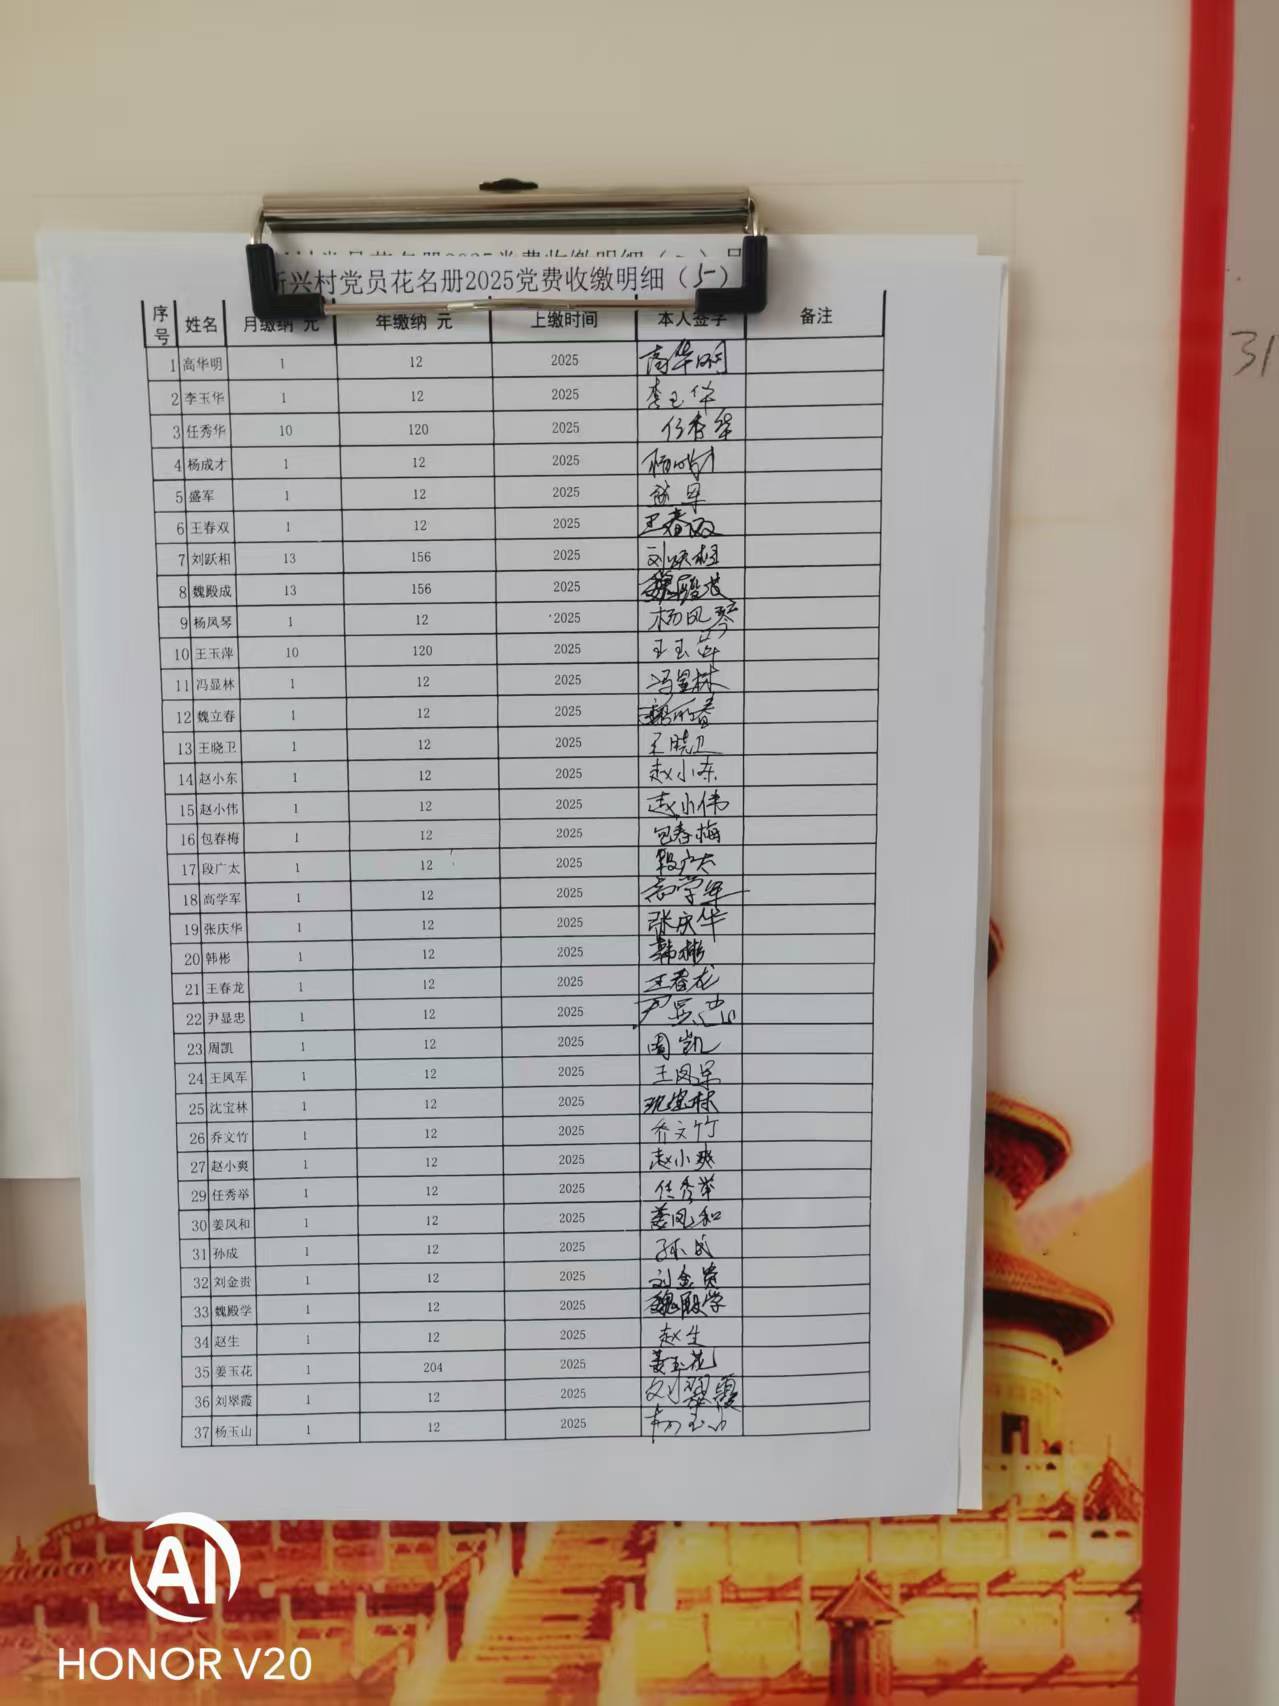 新兴村党员花名册2025党费收缴明细（5-）
序号 姓名 月缴纳 元 年缴纳 元 上缴时间 本人签字 备注
1 高华明 1 12 2025 高华明
2 李玉华 1 12 2025 李玉华
3 任秀华 10 120 2025 任秀华
4 杨成才 1 12 2025 杨成才
5 盛军 1 12 2025 盛军
6 王春双 1 12 2025 王春双
7 刘跃相 13 156 2025 刘跃相
8 魏殿成 13 156 2025 魏殿成
9 杨凤琴 1 12 2025 杨凤琴
10 王玉萍 10 120 2025 王玉萍
11 冯显林 1 12 2025 冯显林
12 魏立春 1 12 2025 魏立春
13 王晓卫 1 12 2025 王晓卫
14 赵小东 1 12 2025 赵小东
15 赵小伟 1 12 2025 赵小伟
16 包春梅 1 12 2025 包春梅
17 段广太 1 12 2025 段广太
18 高学军 1 12 2025 高学军
19 张庆华 1 12 2025 张庆华
20 韩彬 1 12 2025 韩彬
21 王春龙 1 12 2025 王春龙
22 尹显忠 1 12 2025 尹显忠
23 周凯 1 12 2025 周凯
24 王凤军 1 12 2025 王凤军
25 沈宝林 1 12 2025 沈宝林
26 乔文竹 1 12 2025 乔文竹
27 赵小爽 1 12 2025 赵小爽
29 任秀举 1 12 2025 任秀举
30 姜凤和 1 12 2025 姜凤和
31 孙成 1 12 2025 孙成
32 刘金贵 1 12 2025 刘金贵
33 魏殿学 1 12 2025 魏殿学
34 赵生 1 12 2025 赵生
35 姜玉花 1 204 2025 姜玉花
36 刘翠霞 1 12 2025 刘翠霞
37 杨玉山 1 12 2025 杨玉山
31
AI
HONOR V20